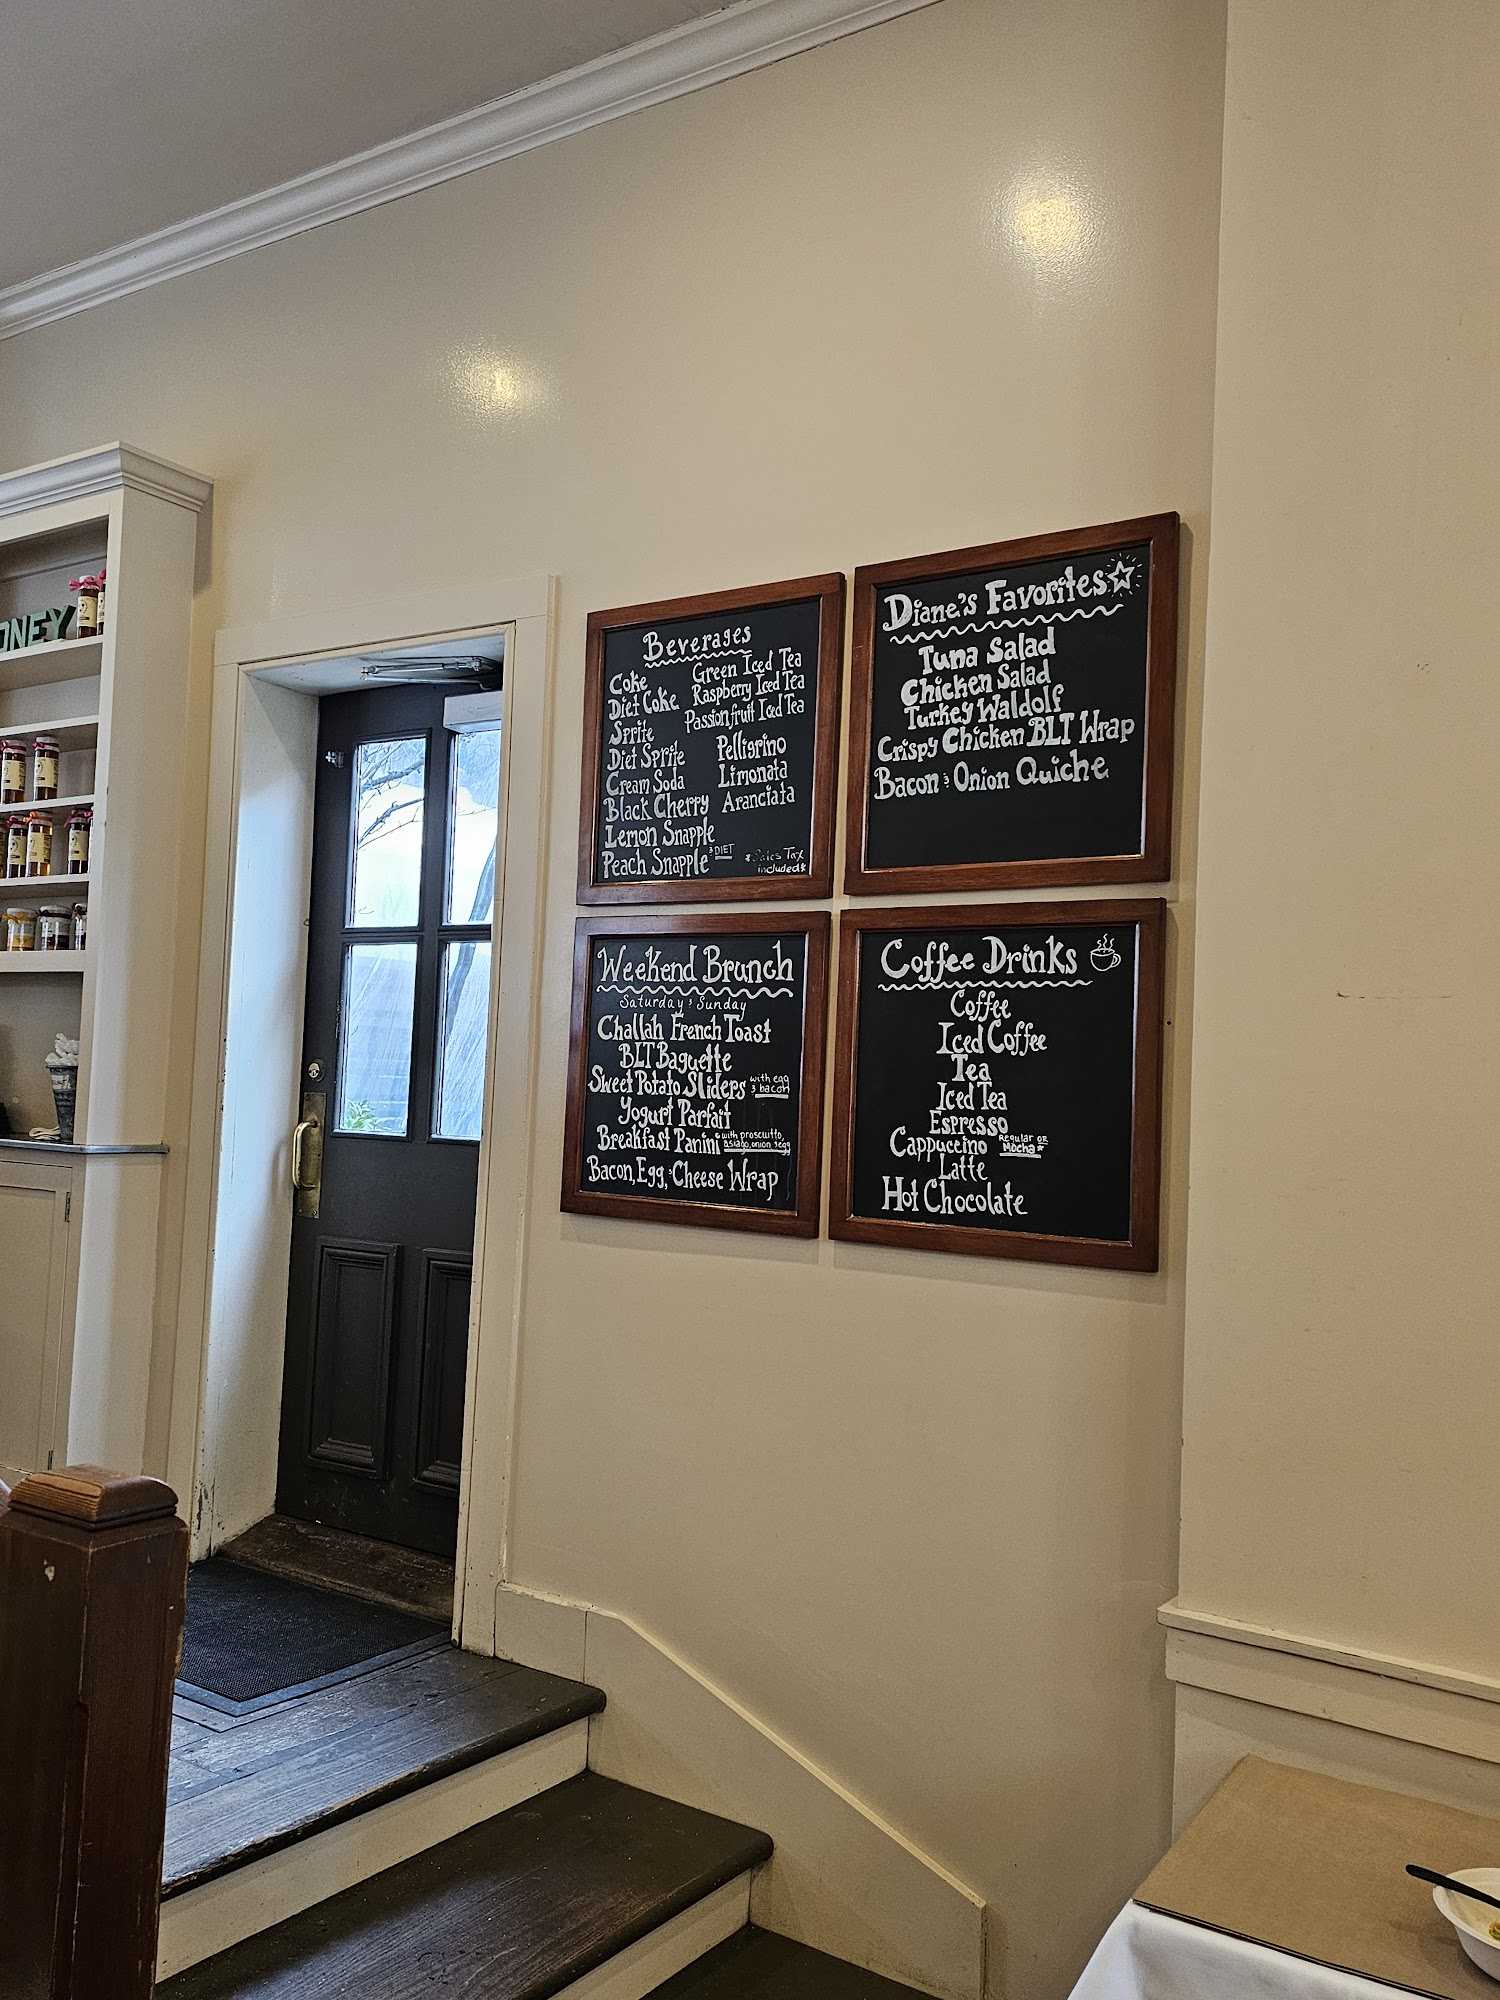 ONEY
Beverages
Coke
Diet Coke
Sprite
Diet Sprite
Cream Soda
Black Cherry
Lemon Snapple
Peach Snapple & DIET
Green Iced Tea
Raspberry Iced Tea
Passionfruit Iced Tea
Pelligrino
Limonata
Aranciata
*Sales Tax
included*
Diane's Favorites
Tuna Salad
Chicken Salad
Turkey Waldolf
Crispy Chicken BLT Wrap
Bacon & Onion Quiche
Weekend Brunch
Saturday & Sunday
Challah French Toast
BLT Baguette
Sweet Potato Sliders with egg
& bacon
Yogurt Parfait
Breakfast Panini with proscuitto,
asiago, onion & egg
Bacon, Egg, & Cheese Wrap
Coffee Drinks
Coffee
Iced Coffee
Tea
Iced Tea
Espresso
Cappuccino Regular or
Mocha*
Latte
Hot Chocolate